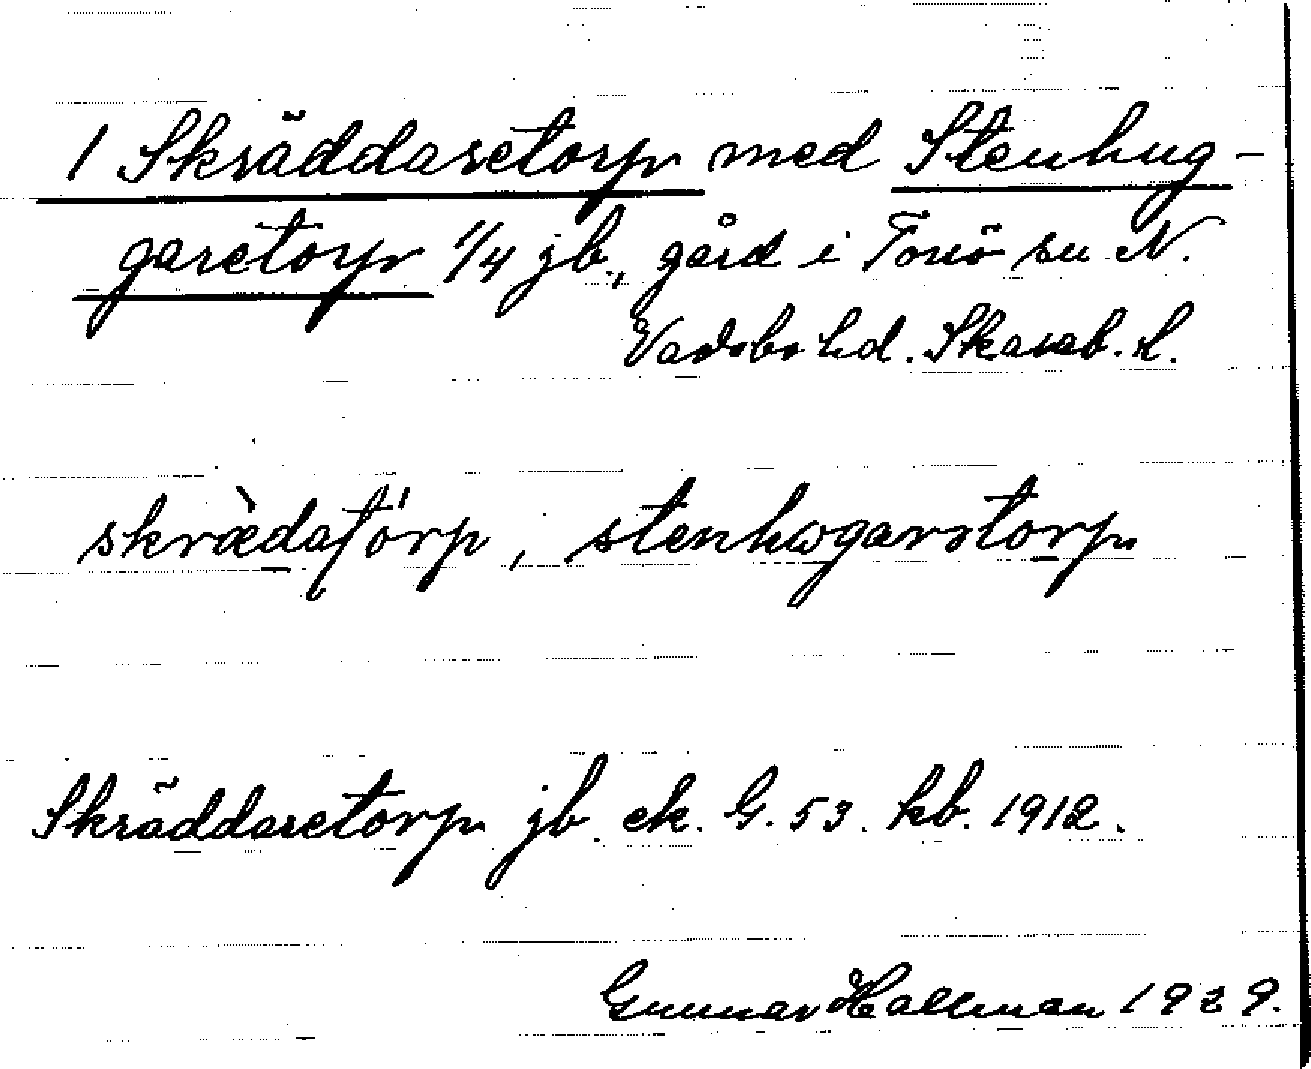 1 Skräddaretorp med Stenhug-
garetorp 1/4 jb., gård i Torsö sn N.
Vadsbo hd. Skarab. l.
skræ̀datórp, stenhogarstorp
Skräddaretorp jb. ek. G. 53. kb. 1912.
Gunnar Hallman 1929.